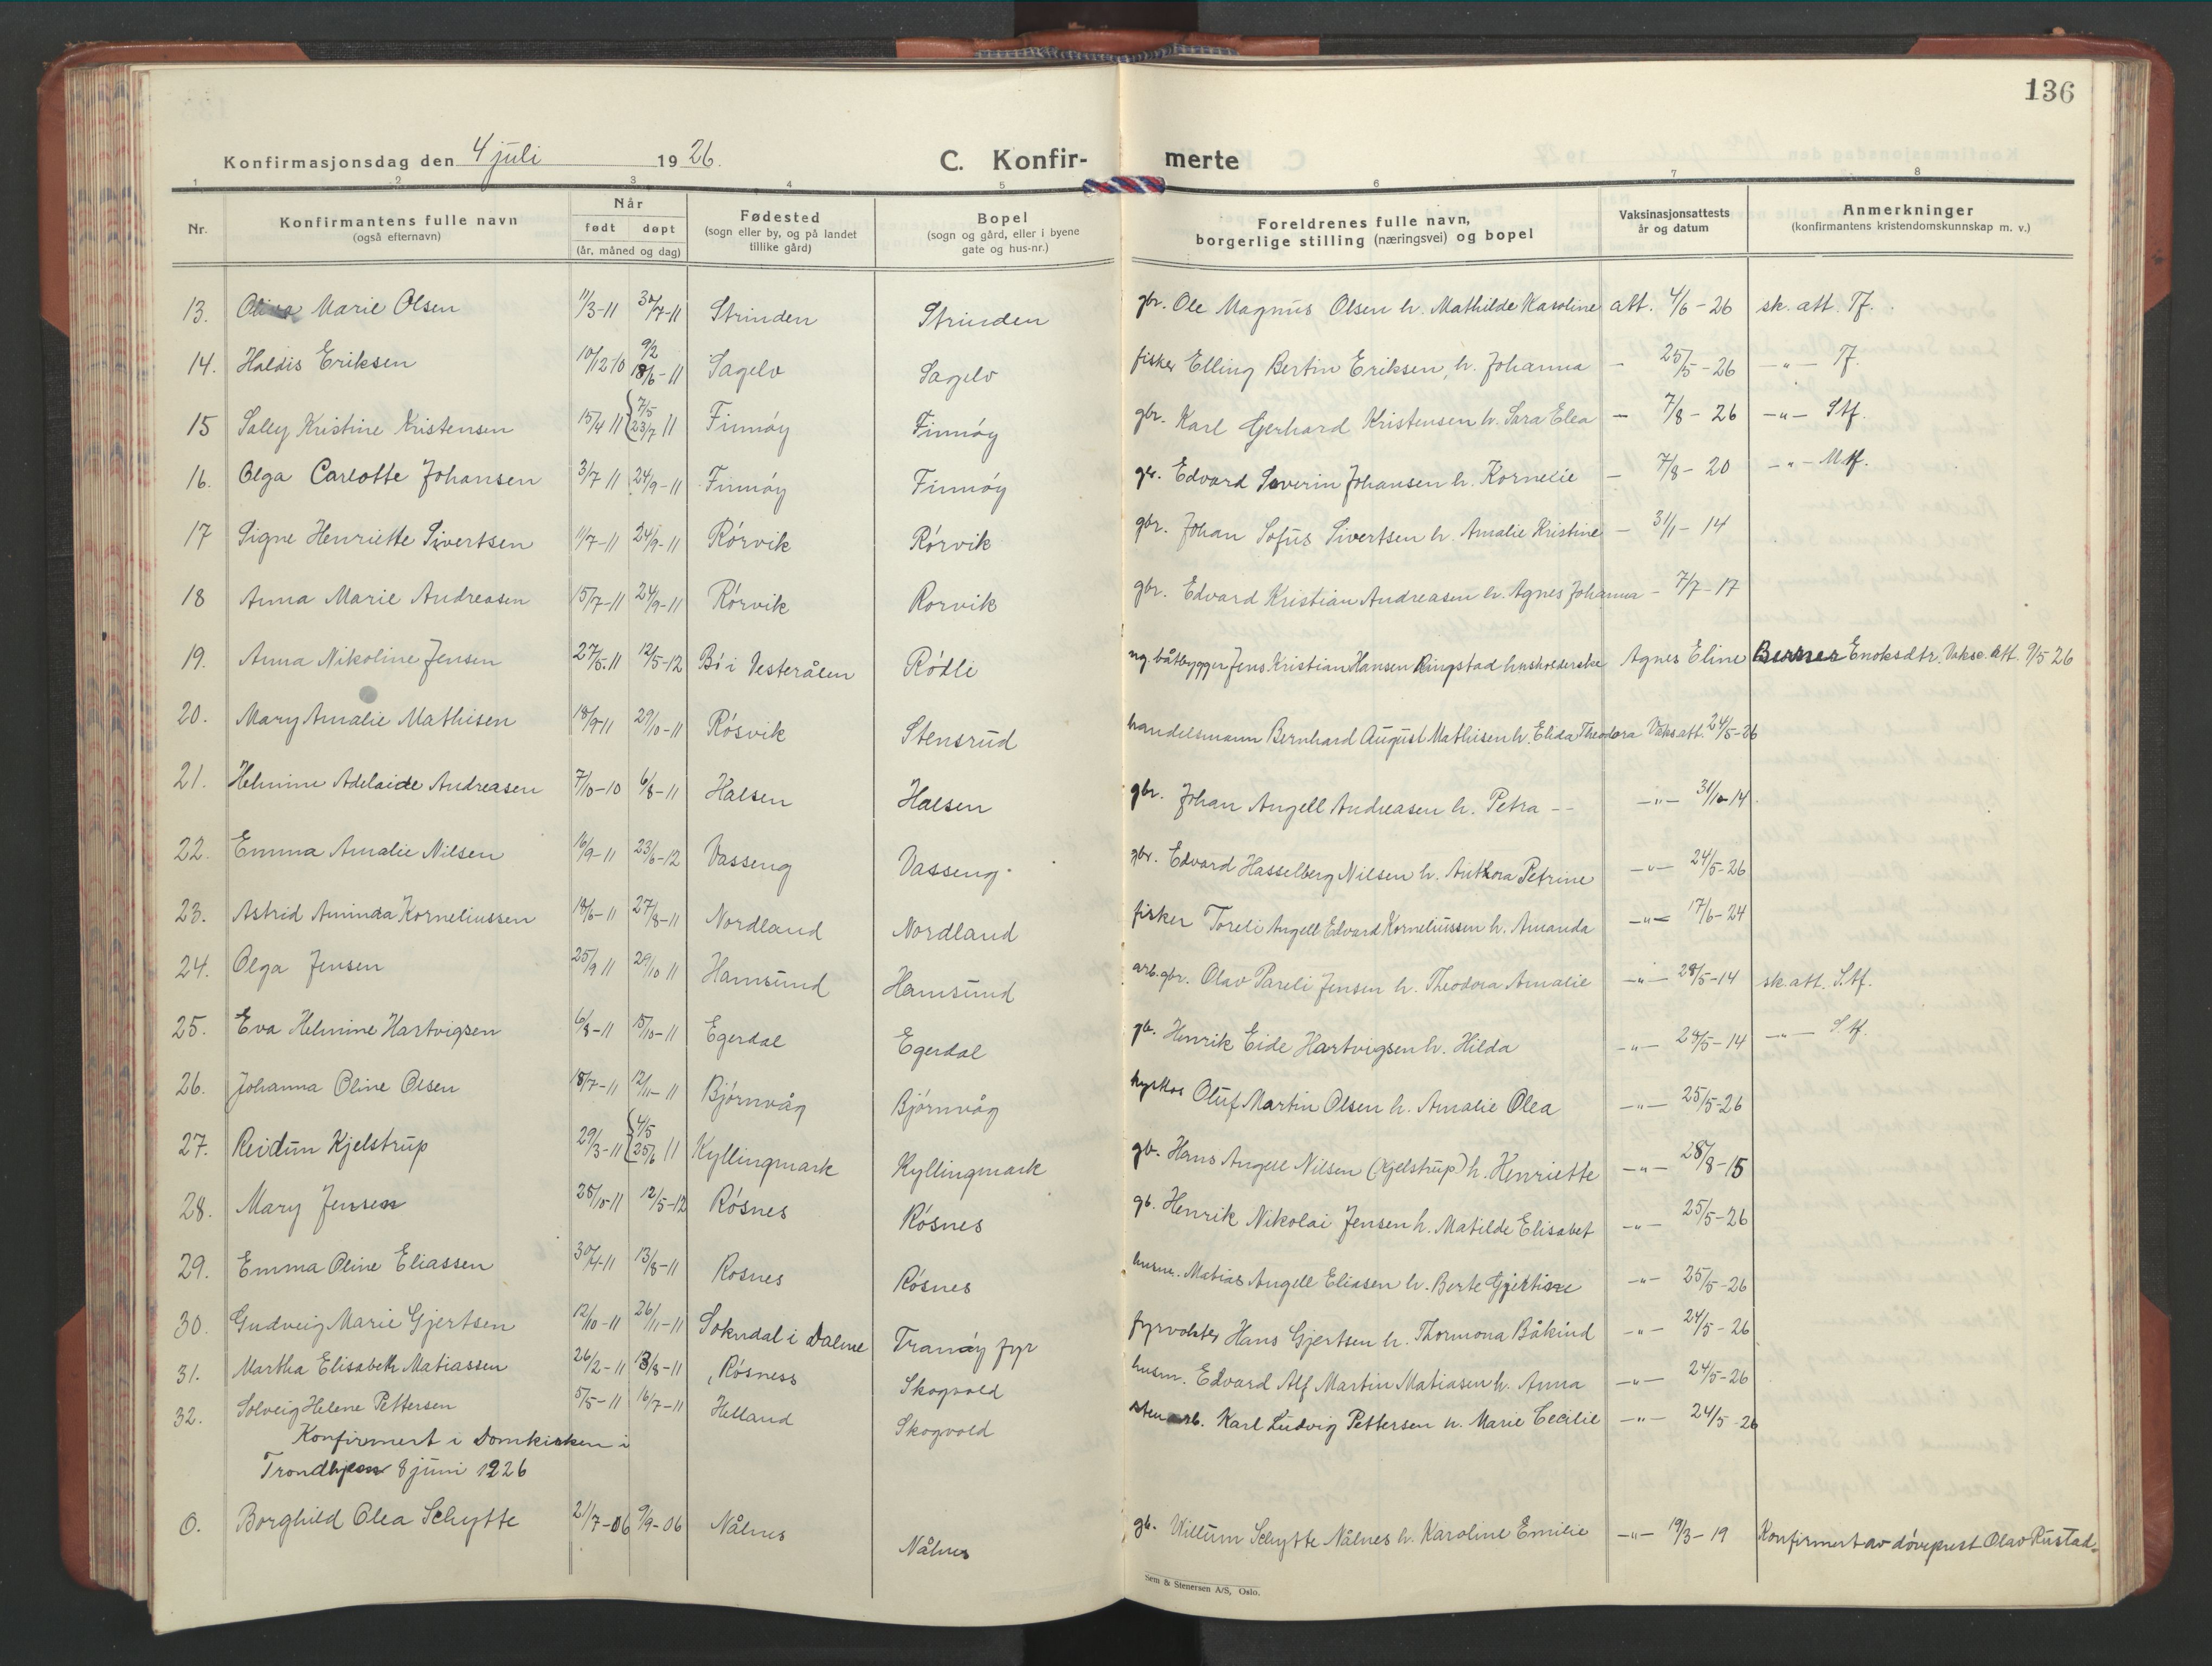 136
Konfirmasjonsdag den 4 juli 1926. C. Konfir- merte
1 2 3 4 5 6 7 8
Nr. Konfirmantens fulle navn (også efternavn) Når født døpt (år, måned og dag) Fødested (sogn eller by, og på landet tillike gård) Bopel (sogn og gård, eller i byene gate og hus-nr.) Foreldrenes fulle navn, borgerlige stilling (næringsvei) og bopel Vaksinasjonsattests år og datum Anmerkninger (konfirmantens kristendomskunnskap m. v.)
13. Marie Olsen 11/3-11 30/7-11 Strinden Strinden gbr. Ole Magnus Olsen h. Mathilde Karoline att. 4/6-26 sk. att. Tf.
14. Haldis Eriksen 10/12 10 9/2 18/6-11 Sagelv Sagelv fisker Elling Bertin Eriksen, h. Johanna - 25/5-26 -"- Tf.
15 Sally Kristine Kristensen 15/4 11 7/5 23/7 11 Finnøy Finnøy gbr. Karl Gerhard Kristensen h. Sara Elea - 7/8-26 -"- Stf.
16. Olga Carlotte Johansen 3/7 11 24/9-11 Finnøy Finnøy gbr. Edvard Severin Johansen h. Kornelie - 7/8-20 -"- Mtf.
17 Signe Henriette Sivertsen 11/7-11 24/9-11 Rørvik Rørvik gbr. Johan Sofus Sivertsen h. Amalie Kristine - 31/1-14
18 Anna Marie Andreasen 15/7-11 24/9-11 Rørvik Rorvik gbr. Edvard Kristian Andreasen h. Agnes Johanna - 7/7-17
19. Anna Nikoline Jensen 27/5.11 12/5-12 Bø i Vesterålen Rødli ug. båtbygger Jens Kristian Hansen Ringstad husholderske Agnes Eline Enoksdtr. Vaks. att. 9/5 26
20. Mary Amalie Mathisen 18/9-11 29/10-11 Røsvik Stensrud handelsmann Bernhard August Mathisen h. Elida Theodora Vaks att. 24/5-26
21. Helmine Adelaide Andreasen 7/10-10 6/8-11 Halsen Halsen gbr. Johan Angell Andreasen h. Petra -- -"- 31/10-14
22. Emma Amalie Nilsen 16/9-11 23/6-12 Vasseng Vasseng. gbr. Edvard Hasselberg Nilsen h. Anthora Petrine -"- 24/5-26
23. Astrid Aminda Korneliussen 18/6-11 27/8-11 Nordland Nordland fisker Toreli Angell Edvard Korneliussen h. Amanda -"- 17/6-24
24. Olga Jensen 25/9 11 29/10 11 Hamsund Hamsund arb. gbr. Olav Pareli Jensen h. Theodora Amalie -"- 28/5-14 sk. att. Stf.
25. Eva Helmine Hartvigsen 6/8-11 15/10-11 Egerdal Egerdal gb. Henrik Eide Hartvigsen h. Hilda -"- 28/5-14 -"- S.tf.
26. Johanna Oline Olsen 18/7-11 12/11-11 Bjørnvåg Bjørnvåg Oluf Martin Olsen h. Amalie Olea -"- 25/5-26
27. Reidun Kjelstrup 29/3-11 4/5 25/6 11 Kyllingmark Kyllingmark gb. Hans Angell Nilsen (Kjelstrup) h. Henriette -"- 28/8-15
28. Mary Jensen 28/10-11 12/5-12 Røsnes Røsnes gb. Henrik Nikolai Jensen h. Matilde Elisabet -"- 25/5-26
29. Emma Oline Eliassen 30/4-11 13/8-11 Rosnes Røsnes husm. Matias Angell Eliasen h. Berte Gjertine -"- 25/5-26
30. Gudveig Marie Gjertsen 12/10-11 26/11-11 Sokndal i Dalene Tranøy fyr fyrvokter Hans Gjertsen h. Thormona Båkind -"- 24/5-26
31. Martha Elisabeth Matiassen 26/2-11 13/8-11 Røsness Skogvold husm. Edvard Alf Martin Matiasen h. Anna -"- 24/5-26
32. Solveig Helene Pettersen 5/5-11 16/7-11 Helland Skogvold stenarb. Karl Ludvig Pettersen h. Marie Cecilie -"- 24/5-26
Konfirmert i Domkirken i
Trondhjem 8 juni 1926
0. Borghild Olea Schytte 21/7-06 9/9-06 Nålnes Nålnes gb. Willum Schytte Nålnes h. Karoline Emilie -"- 19/3-19 Konfirmert av døveprest Olav Rustad.
Sem & Stenersen A/S, Oslo.